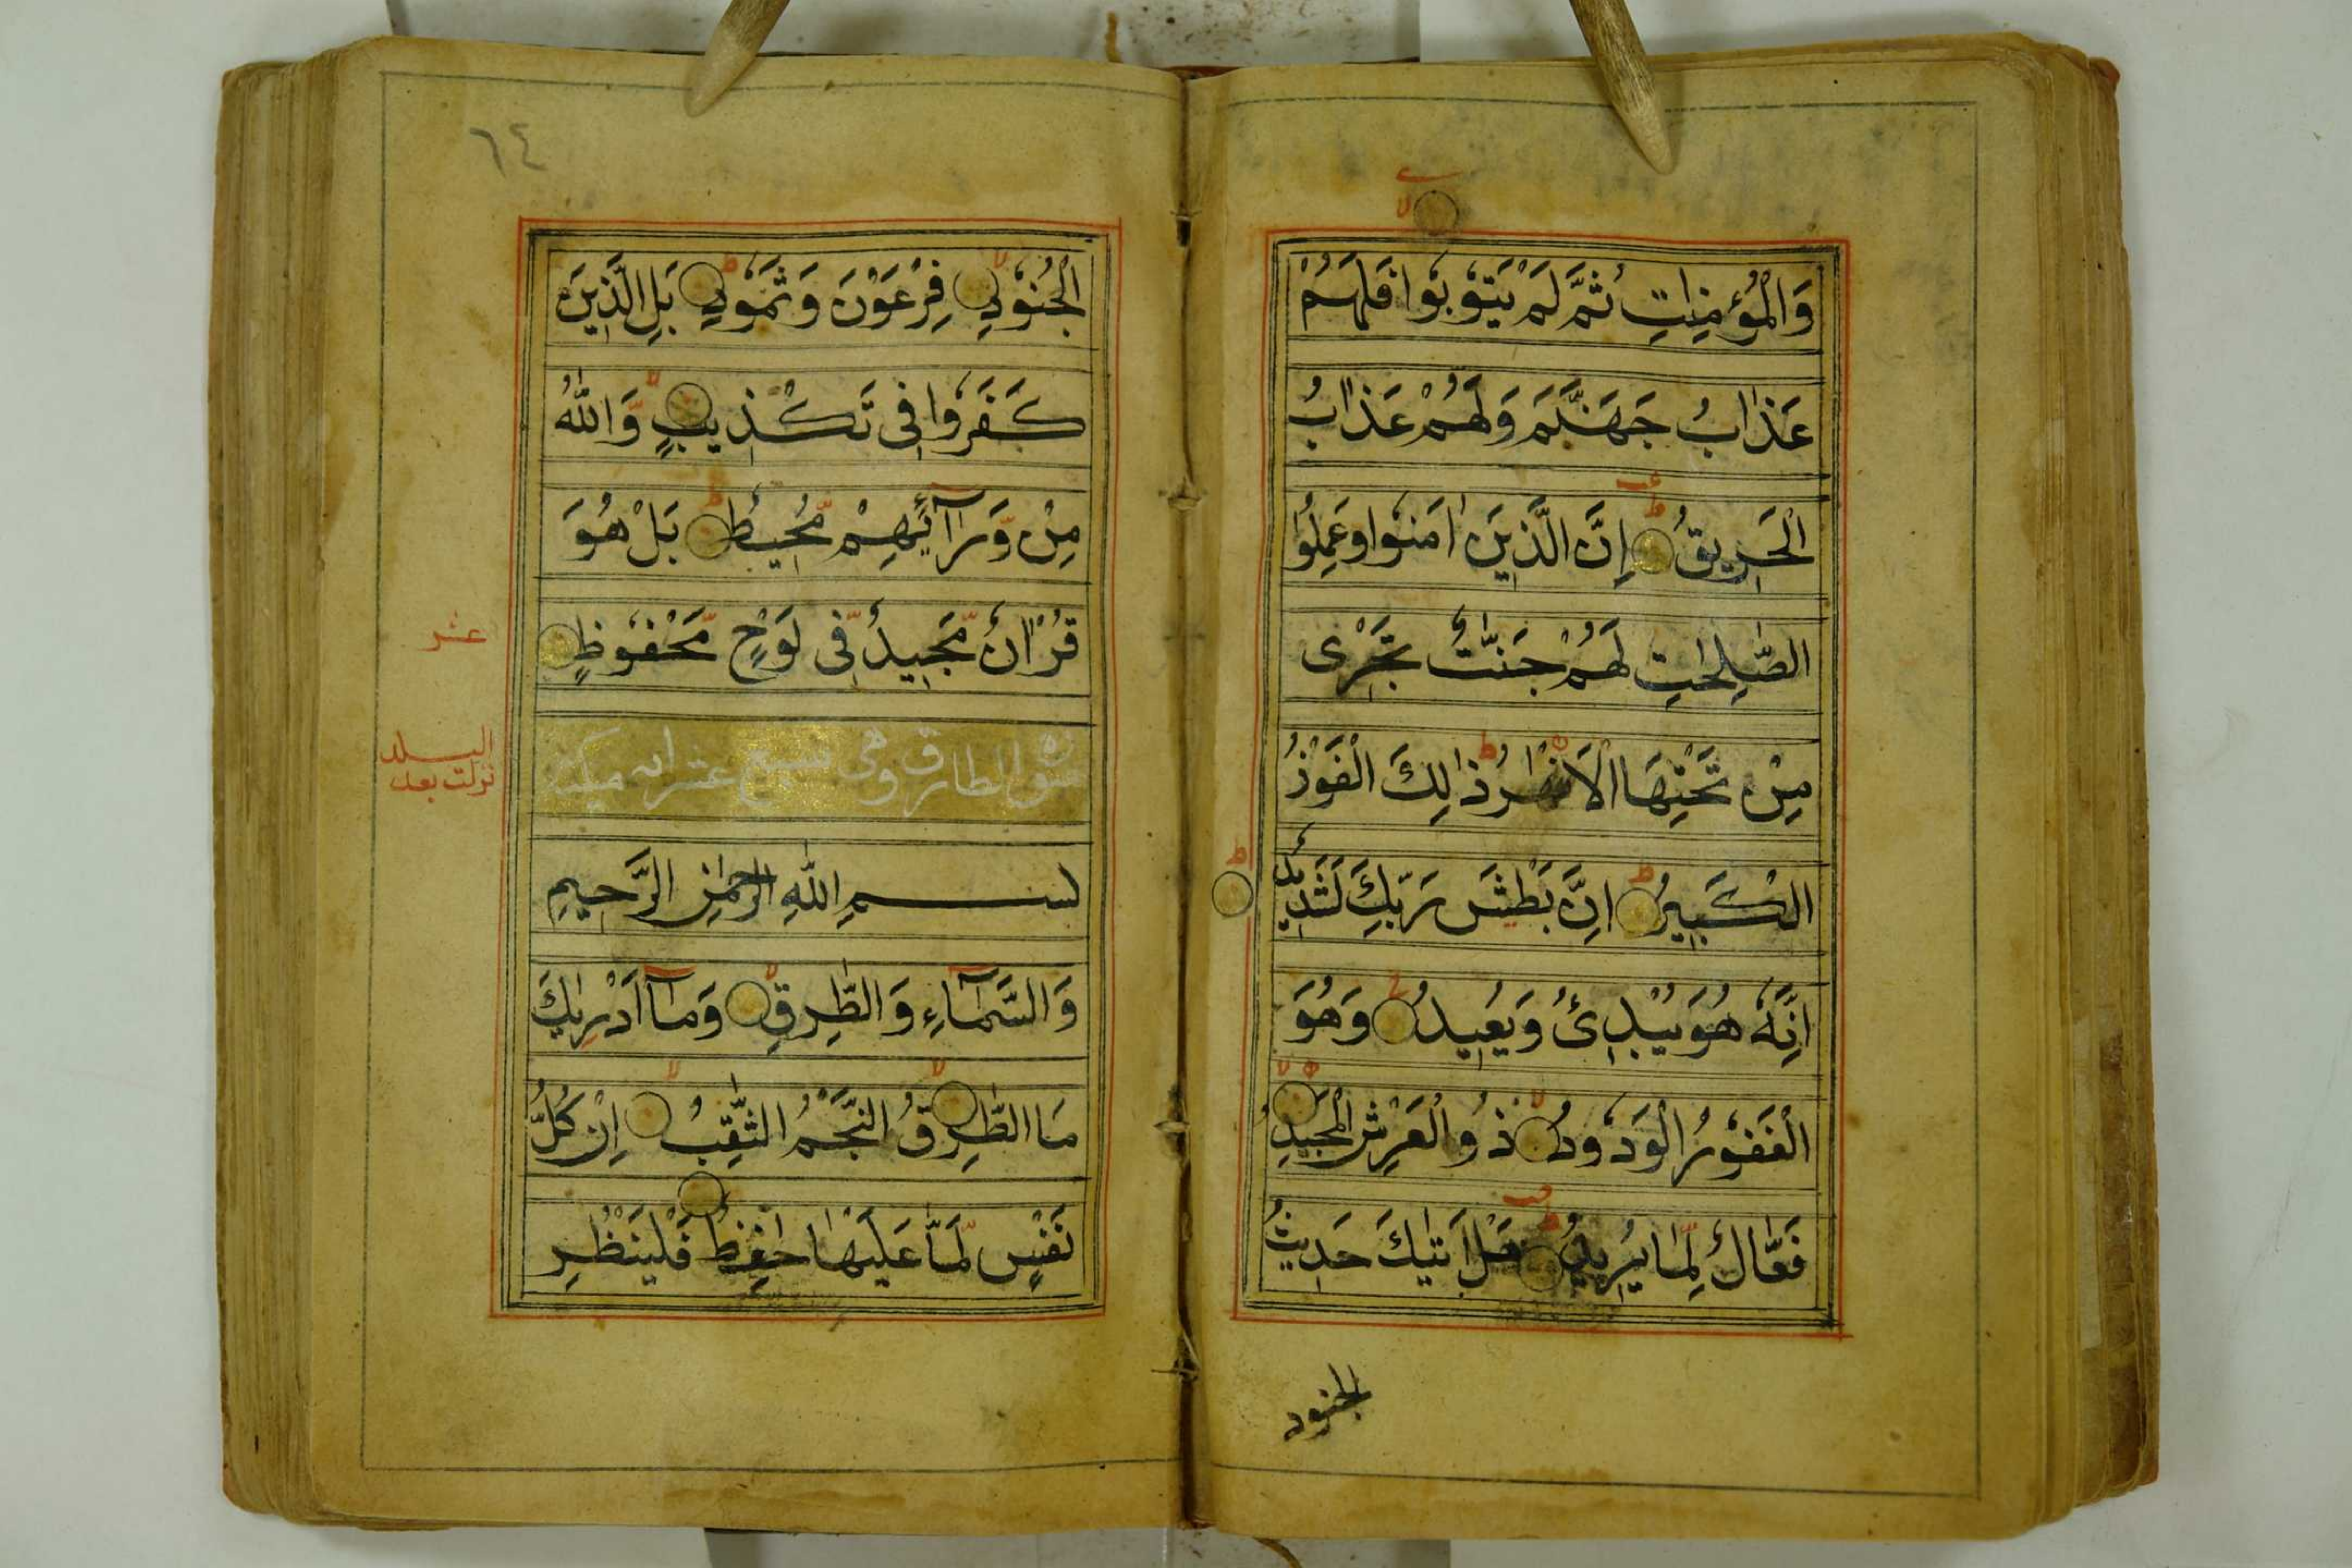 وَالْمُؤْمِنٰتِ ثُمَّ لَمْ يَتُوْبُوْا فَلَهُمْ
عَذَابُ جَهَنَّمَ وَلَهُمْ عَذَابُ
الْحَرِيقُ اِنَّ الَّذِيْنَ اٰمَنُوْا وَعَمِلُوا
الصّٰلِحٰتِ لَهُمْ جَنّٰتٌ تَجْرِى
مِنْ تَحْتِهَا الْاَنْهٰرُ ذٰلِكَ الْفَوْزُ
الْكَبِيْرُ اِنَّ بَطْشَ رَبِّكَ لَشَدِيْدٌ
اِنَّهٗ هُوَ يُبْدِئُ وَيُعِيدُ وَهُوَ
الْغَفُوْرُ الْوَدُوْدُ ذُو الْعَرْشِ الْمَجِيْدُ
فَعَّالٌ لِّمَا يُرِيْدُ هَلْ اَتٰىكَ حَدِيْثُ
الجنود
٦٤
الْجُنُوْدِ فِرْعَوْنَ وَثَمُوْدَ بَلِ الَّذِيْنَ
كَفَرُوْا فِى تَكْذِيْبٍ وَّاللّٰهُ
مِنْ وَّرَآئِهِمْ مُّحِيْطٌ بَلْ هُوَ
قُرْاٰنٌ مَّجِيْدٌ فِّى لَوْحٍ مَّحْفُوْظٍ
عشر
سورة الطارق وهى سبع عشر اية مكية
البلد
نزلت بعد
بسم اللهِ الرَّحْمٰنِ الرَّحِيْمِ
وَالسَّمَآءِ وَالطَّارِقِ وَمَآ اَدْرٰىكَ
مَا الطَّارِقُ النَّجْمُ الثَّاقِبُ اِنْ كُلُّ
نَفْسٍ لَّمَّا عَلَيْهَا حَافِظٌ فَلْيَنْظُرِ